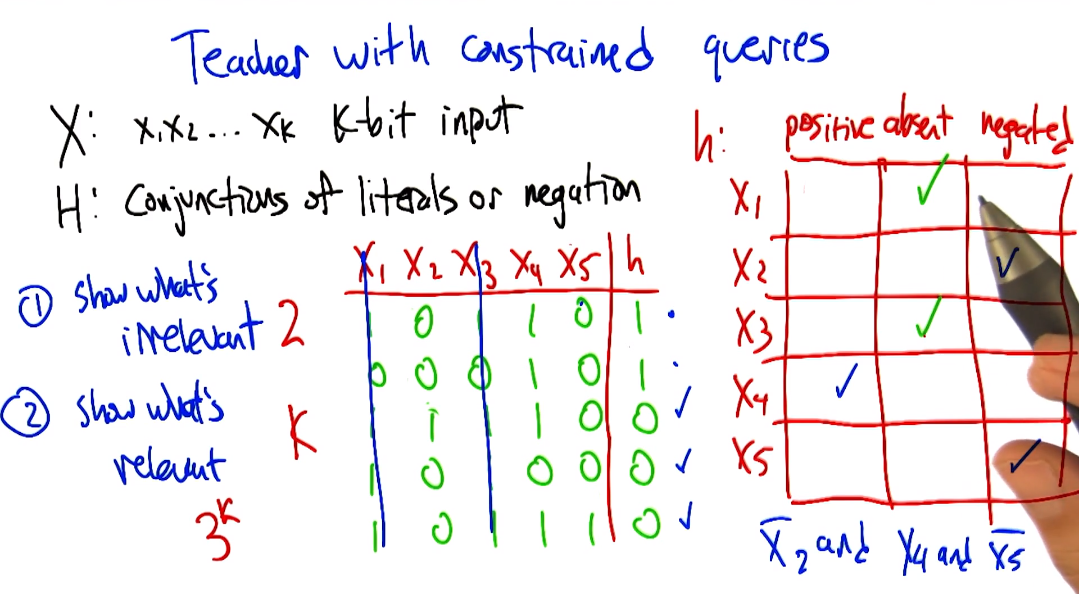 Teacher with constrained queries
X: x₁x₂... xₖ K-bit input
H: Conjunctions of literals or negation
① show what's irrelevant 2
② show what's relevant K
3ᴷ
X₁ X₂ X₃ X₄ X₅ h
1 0 1 1 0 1
0 0 0 1 0 1
1 1 1 1 0 0 ✓
1 0 1 0 0 0 ✓
1 0 1 1 1 0 ✓
h: positive absent negated
X₁ ✓
X₂ ✓
X₃ ✓
X₄ ✓
X₅ ✓
X̅₂ and X₄ and X̅₅